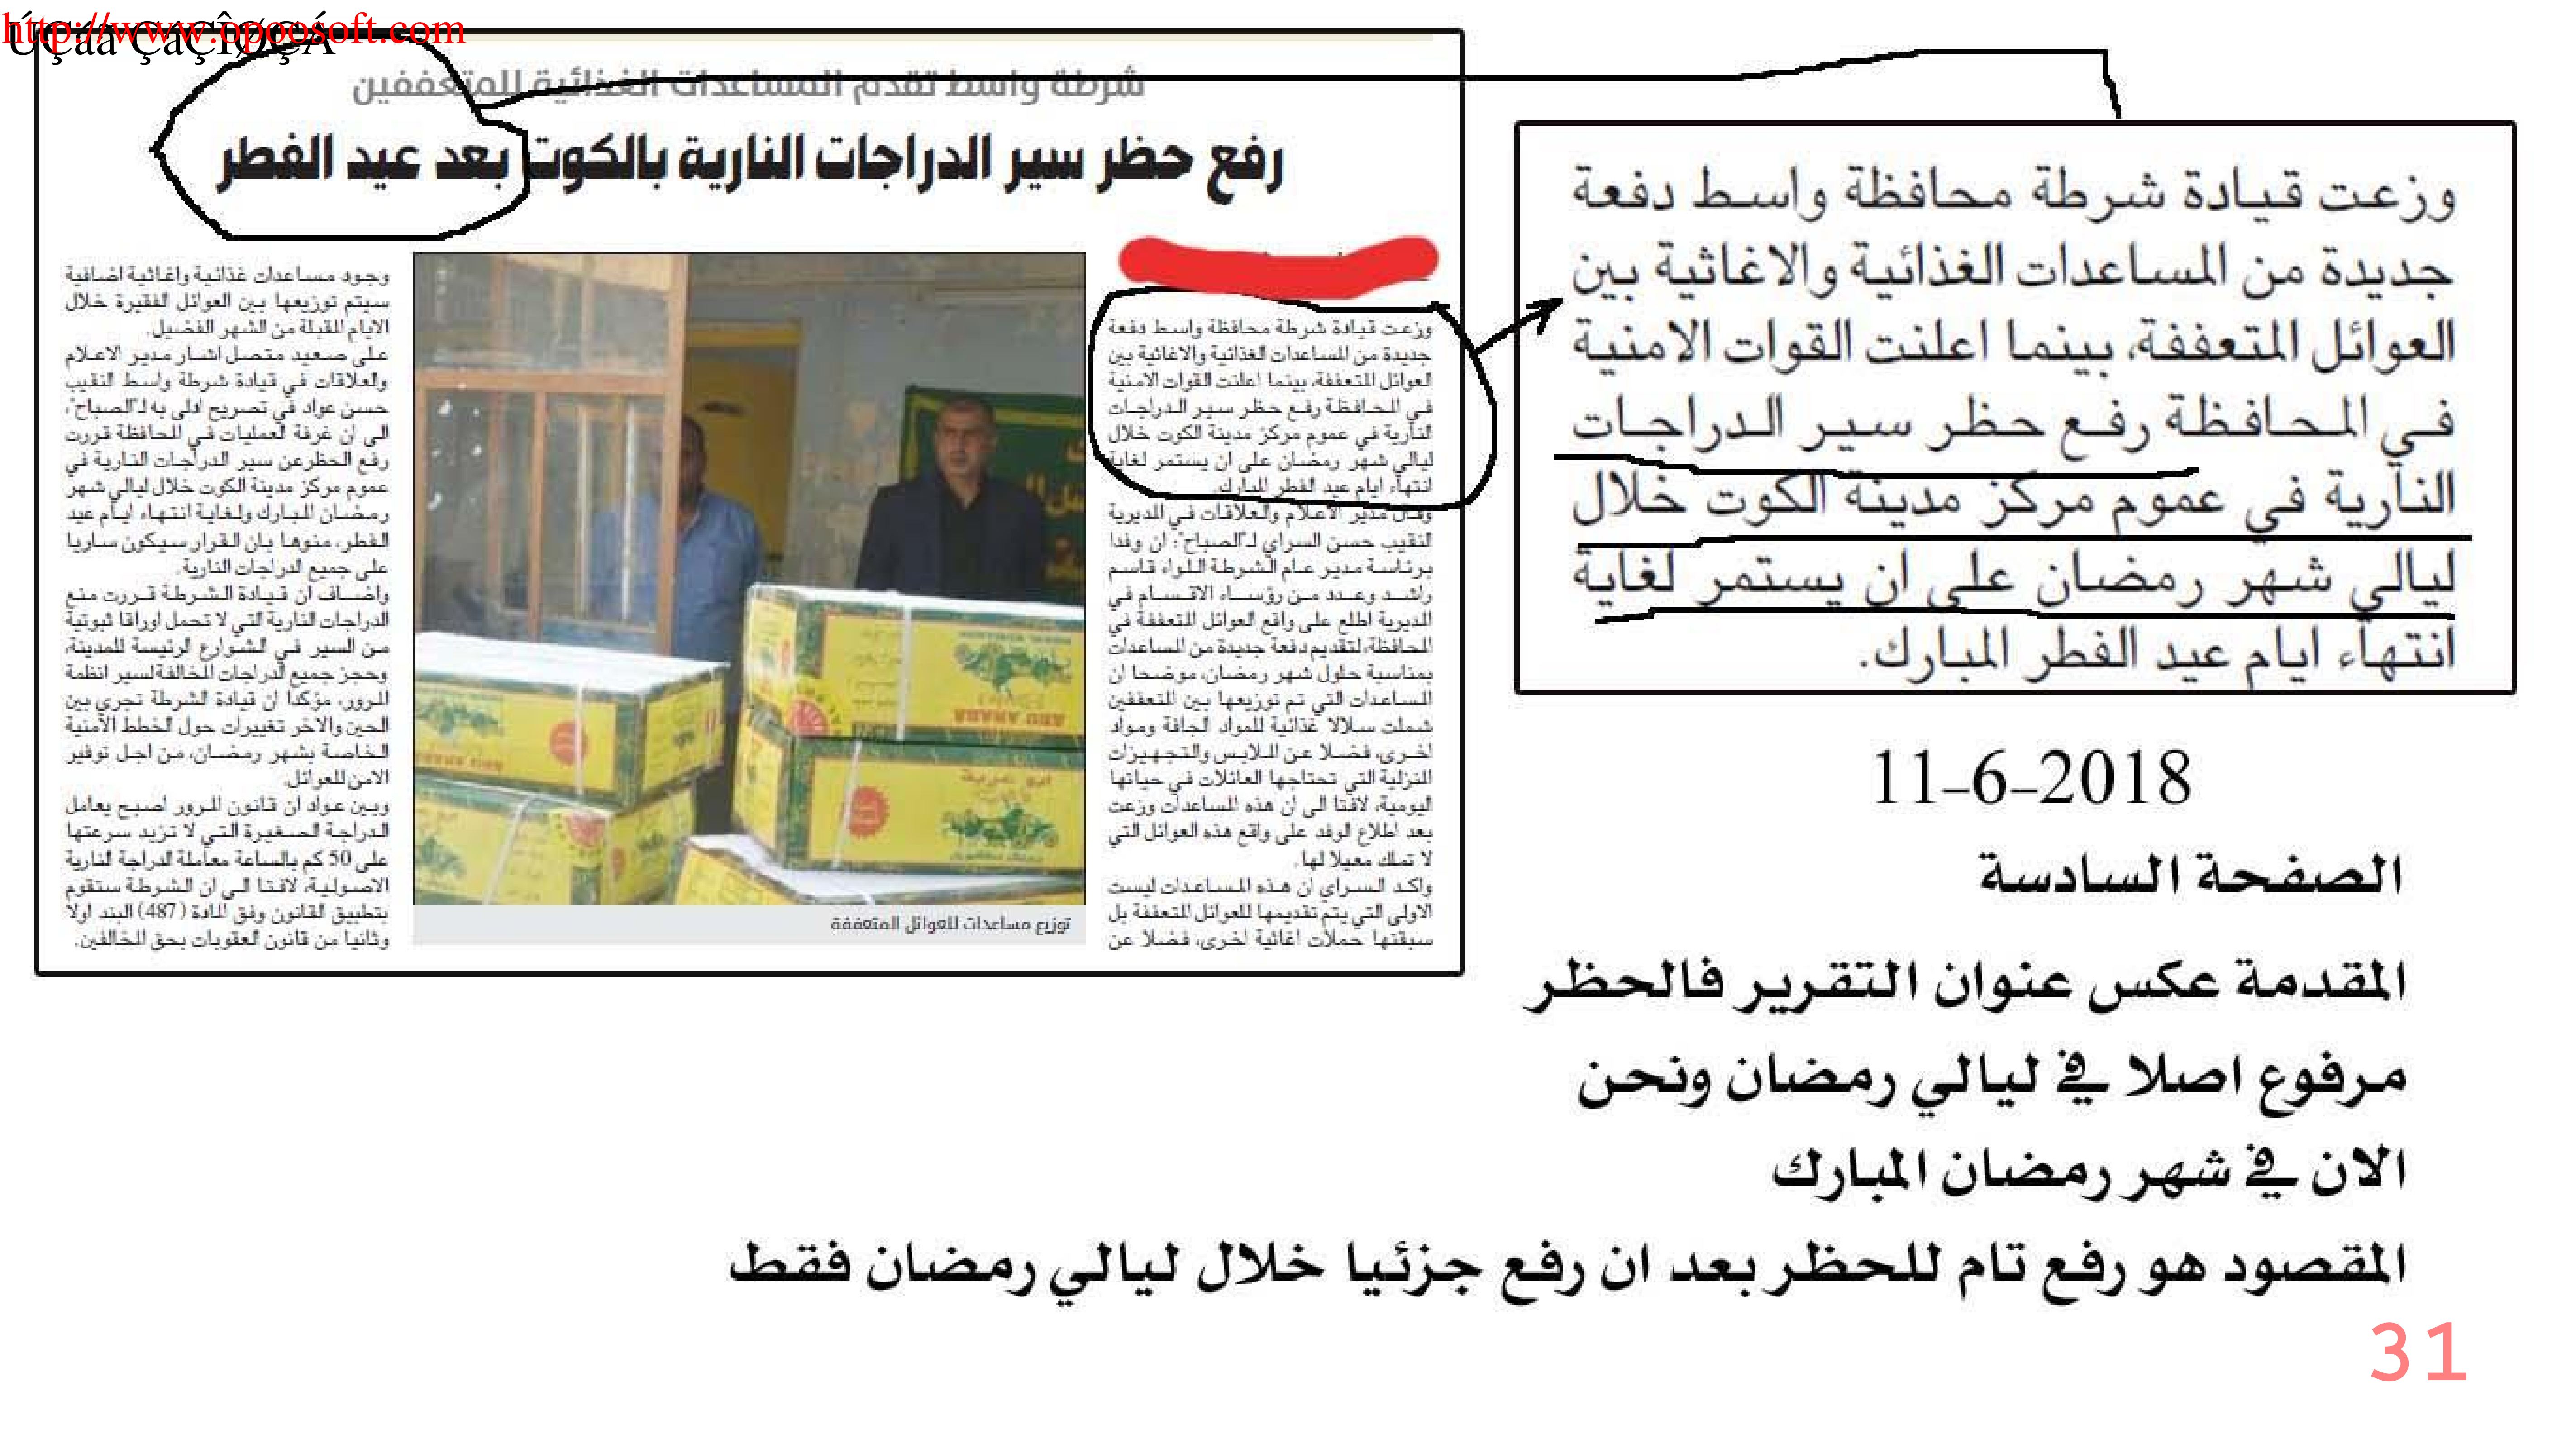 http://www.opoosoft.com
شرطة واسط تقدم المساعدات الغذائية للمتعففين
رفع حظر سير الدراجات النارية بالكوت بعد عيد الفطر
وزعت قيادة شرطة محافظة واسط دفعة
جديدة من المساعدات الغذائية والاغاثية بين
العوائل المتعففة، بينما اعلنت القوات الامنية
في المحافظة رفع حظر سير الدراجات
النارية في عموم مركز مدينة الكوت خلال
ليالي شهر رمضان على ان يستمر لغاية
انتهاء ايام عيد الفطر المبارك.
وقال مدير الاعلام والعلاقات في المديرية
النقيب حسن السراي لـ"الصباح": ان وفدا
برئاسة مدير عام الشرطة اللواء قاسم
راشد وعدد من رؤساء الاقسام في
المديرية اطلع على واقع العوائل المتعففة في
المحافظة، لتقديم دفعة جديدة من المساعدات
بمناسبة حلول شهر رمضان، موضحا ان
المساعدات التي تم توزيعها بين المتعففين
شملت سلالا غذائية للمواد الجافة ومواد
اخرى، فضلا عن الملابس والتجهيزات
المنزلية التي تحتاجها العائلات في حياتها
اليومية، لافتا الى ان هذه المساعدات وزعت
بعد اطلاع الوفد على واقع هذه العوائل التي
لا تملك معيلا لها.
واكد السراي ان هذه المساعدات ليست
الاولى التي يتم تقديمها للعوائل المتعففة بل
سبقتها حملات اغاثية اخرى، فضلا عن
توزيع مساعدات للعوائل المتعففة
وجود مساعدات غذائية واغاثية اضافية
سيتم توزيعها بين العوائل الفقيرة خلال
الايام المقبلة من الشهر الفضيل.
على صعيد متصل اشار مدير الاعلام
والعلاقات في قيادة شرطة واسط النقيب
حسن عواد في تصريح ادلى به لـ"الصباح"،
الى ان غرفة العمليات في المحافظة قررت
رفع الحظر عن سير الدراجات النارية في
عموم مركز مدينة الكوت خلال ليالي شهر
رمضان المبارك ولغاية انتهاء ايام عيد
الفطر، منوها بان القرار سيكون ساريا
على جميع الدراجات النارية.
واضاف ان قيادة الشرطة قررت منع
الدراجات النارية التي لا تحمل اوراقا ثبوتية
من السير في الشوارع الرئيسة للمدينة،
وحجز جميع الدراجات المخالفة لسير انظمة
المرور، مؤكدا ان قيادة الشرطة تجري بين
الحين والاخر تغييرات حول الخطط الامنية
الخاصة بشهر رمضان، من اجل توفير
الامن للعوائل.
وبين عواد ان قانون المرور اصبح يعامل
الدراجة الصغيرة التي لا تزيد سرعتها
على 50 كم بالساعة معاملة الدراجة النارية
الاصولية، لافتا الى ان الشرطة ستقوم
بتطبيق القانون وفق المادة (487) البند اولا
وثانيا من قانون العقوبات بحق المخالفين.
وزعت قيادة شرطة محافظة واسط دفعة
جديدة من المساعدات الغذائية والاغاثية بين
العوائل المتعففة، بينما اعلنت القوات الامنية
في المحافظة رفع حظر سير الدراجات
النارية في عموم مركز مدينة الكوت خلال
ليالي شهر رمضان على ان يستمر لغاية
انتهاء ايام عيد الفطر المبارك.
11-6-2018
الصفحة السادسة
المقدمة عكس عنوان التقرير فالحظر
مرفوع اصلا في ليالي رمضان ونحن
الان في شهر رمضان المبارك
المقصود هو رفع تام للحظر بعد ان رفع جزئيا خلال ليالي رمضان فقط
31